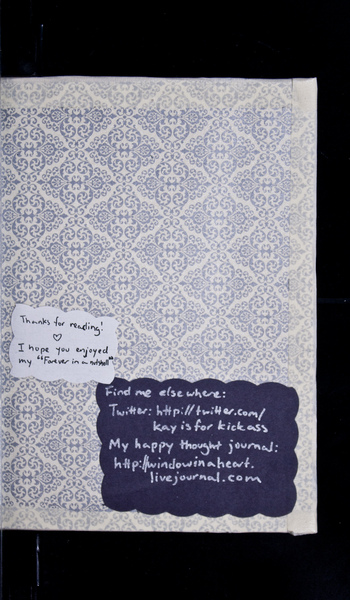 Thanks for reading!
♡
I hope you enjoyed
my "Forever in a nutshell"
Find me elsewhere:
Twitter: http://twitter.com/
kay is for kickass
My happy thought journal:
http://windowinaheart.
livejournal.com